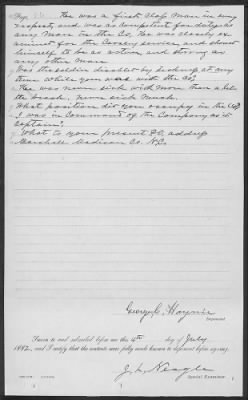 He was a first class man in every
respect, and was as competent for duty as
any man in the Co, He was closely ex
amined for the Cavalry service, and showed
himself to be as active and strong as
any other man
Was the sick or disabled by sickness at any
time while you was with the Co?
He was never sick with more than a little
, never sick much.
What position did you occupy in the Co?
I was in Command of the Company as its
Captain.
What is your present P.O. address
Marshall Madison Co. N.C.
George C. Haynie
Deponent
Sworn to and subscribed before me this 14th day of July
1882, and I certify that the contents were fully made known to deponent before signing.
Special Examiner